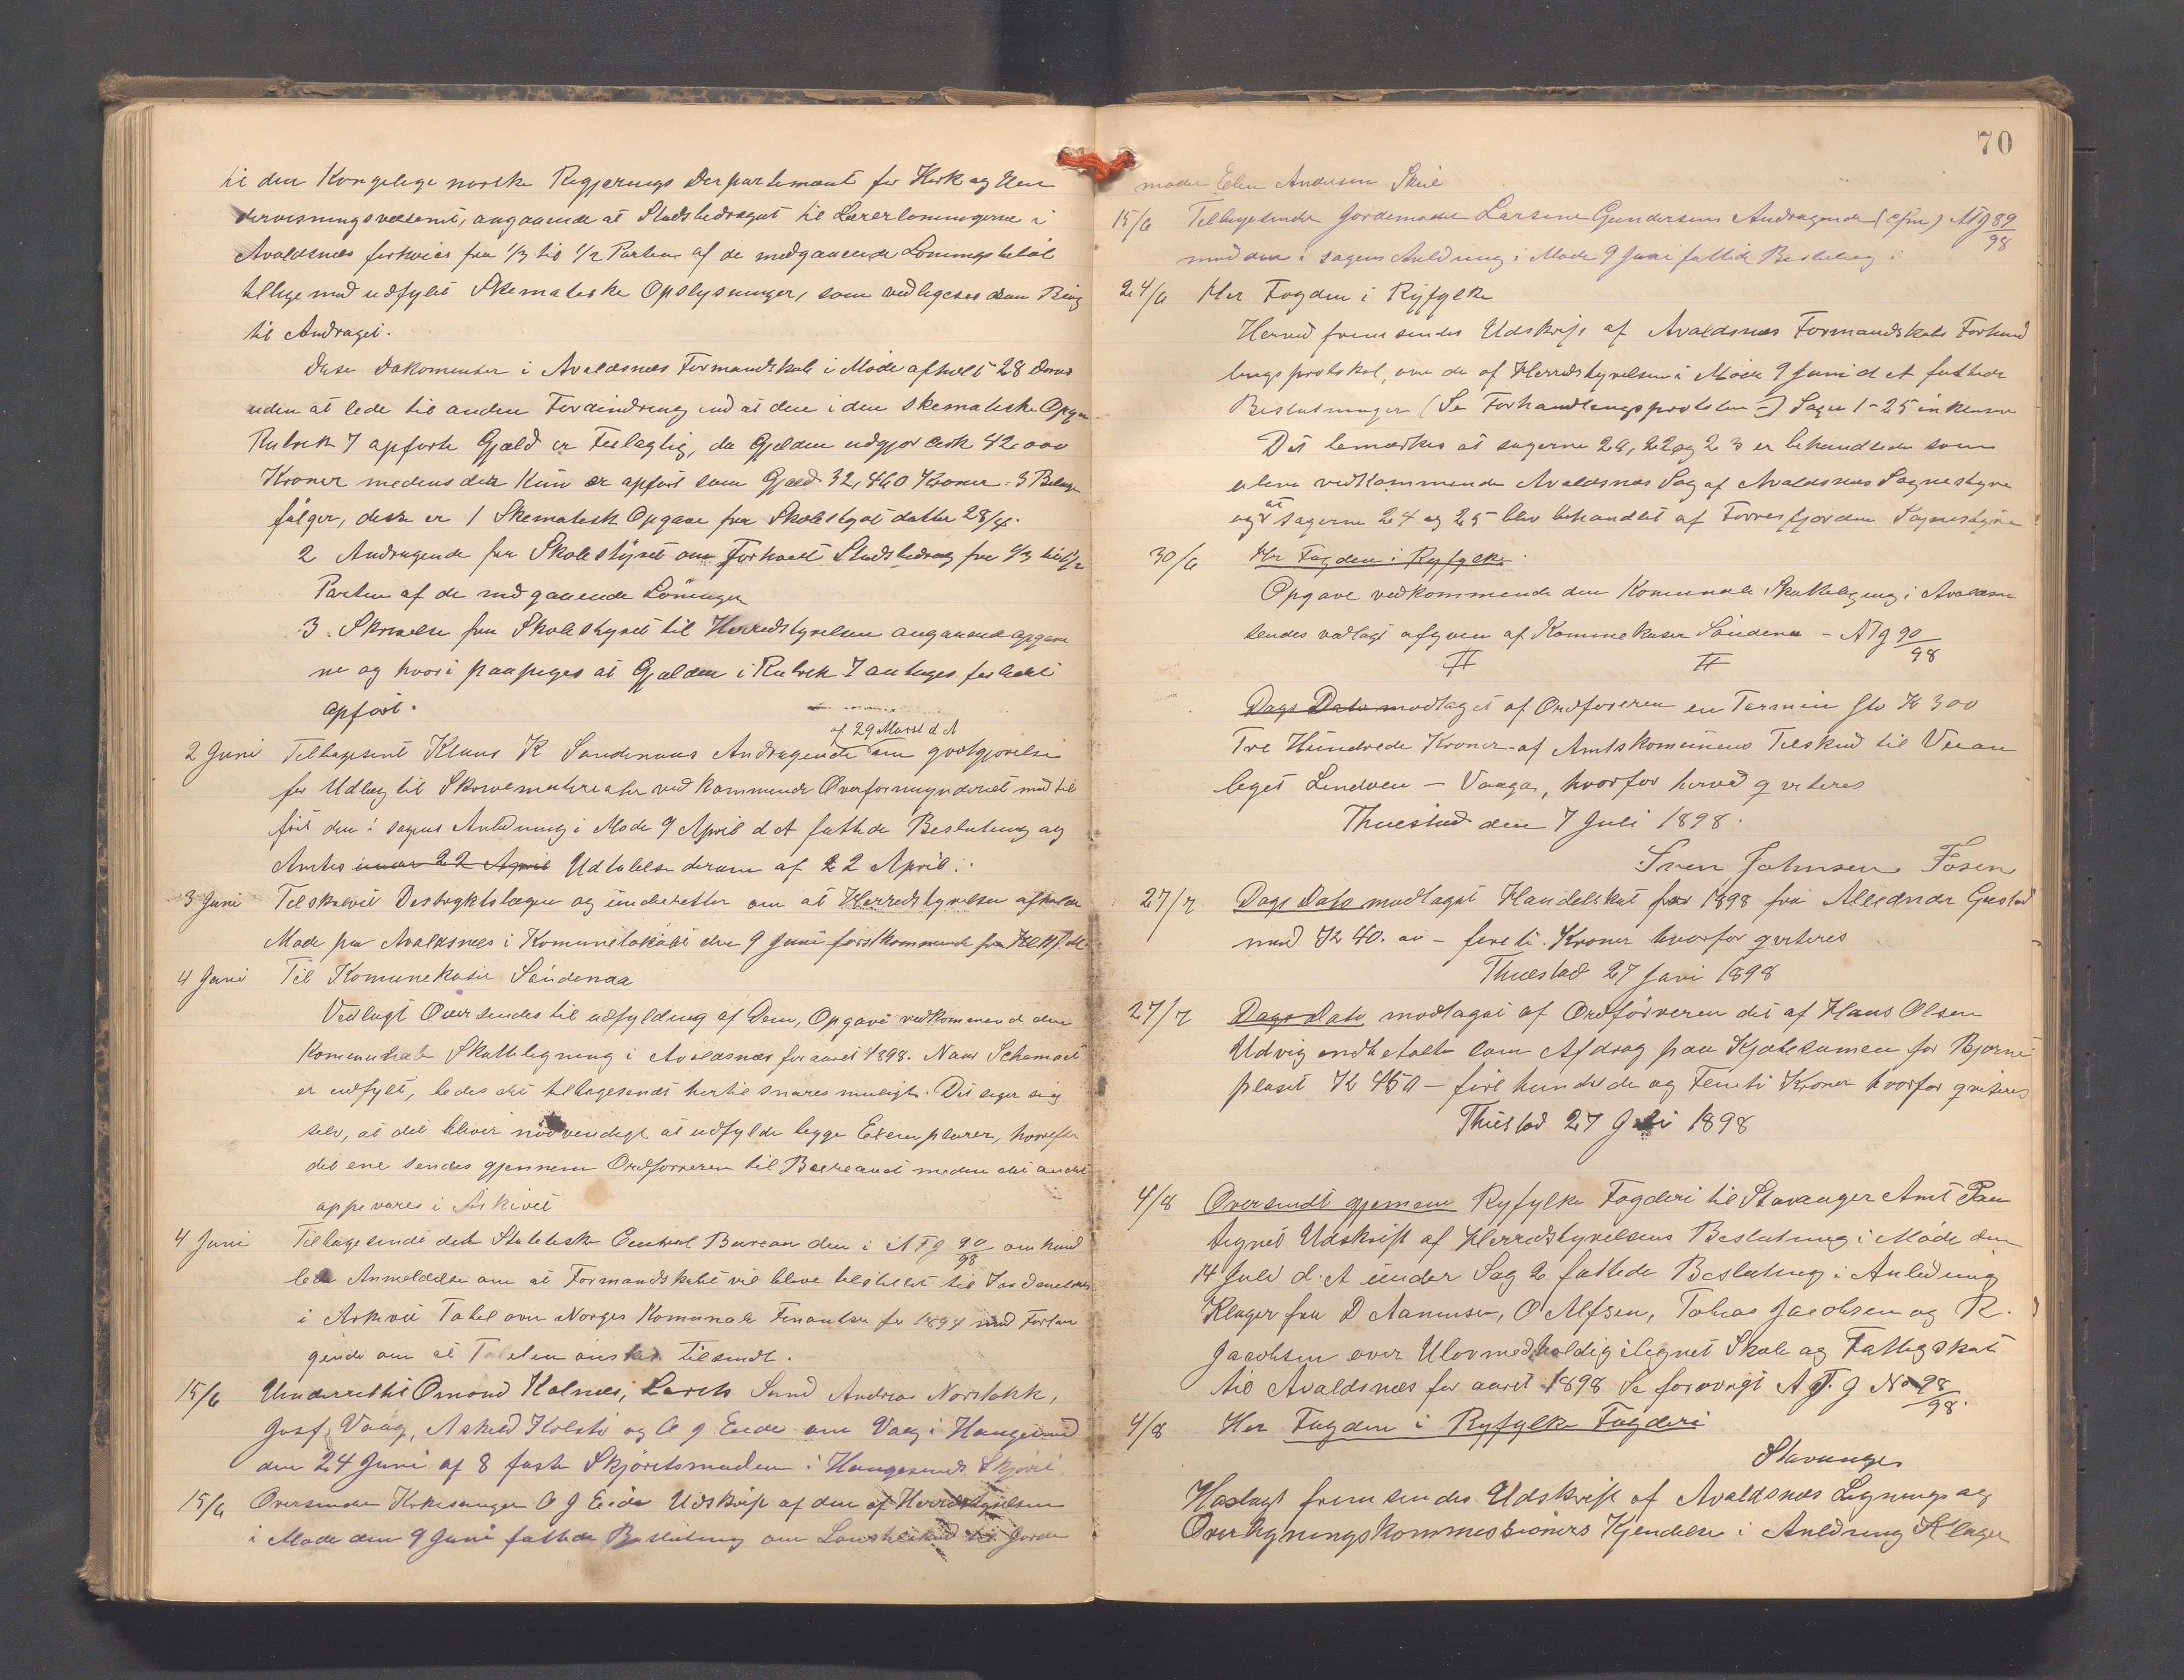 til den Kongelige norske Regjerings Departement for Kirke og Un
dervisningsvæsenet, angaaende at Stadsbedraget til Lærerlønningerne i
Avaldsnes forhøies fra 1/3 til 1/2 Parten af de medgaaende Lønningsbeløb
tillige med udfyldt Skematiske Opslysninger, som vedlægges som Bilag
til Andraget.
Disse Dokomenter i Avaldsnes Formandskab i Møde afholdt 28 
uden at lede til anden Forandring end at den i den skematiske Opga
Rubrik 7 opførte Gjæld er Feilagtig, da Gjælden udgjør cirk 42.000
Kroner medens der Kun er opført som Gjæld 32,460 Kroner. 3 Bilage
følger, disse er 1 Skematisk Opgave fra Skolestyret datter 28/4.
2 Andragende fra Skolestyret om Forhøiet Stadsbedrag fra 1/3 til 1/2
Parten af de medgaaende Löninger
3. Skrivelse fra Skolestyret til Herredstyrelsen angaaende opgave
ne og hvori paapeges at Gjælden i Rubrik 7 antages feilakti
opført.
af 29 Marts d A
2 Juni Tilbagesent Klaus K Sandenaas Andragende om godtgjørelse
for Udlæg til Skrivematerialer vedkommende Overformynderiet med til
føiet den i sagens Anledning i Møde 9 April d A fattede Beslutning og
Amtes innar 22 April Udtalelse derom af 22 April.
3 Juni Tilskrevit Destryktslægen og underetter om at Herredstyrelsen afholder
Møde paa Avaldsnes i Komunelokalet den 9 Juni førstkommende fra Kl
4 Juni Til Komunekasir Søndenaa
Vedlagt Oversendes til udfylding af Dem, Opgave vedkommend den
Komunale Skatteligning i Avaldsnes for aaret 1898. Naar Schemaet
er udfylt, bedes det tilbagesendt hertil snares muligt. Det seger sig
selv, at det bliver nødvendigt at udfylde begge Exemplarer, hvorefter
det ene sendes gjennem Ordføreren til Bureauet meden det andet
oppevares i Arkivet
4 Juni Tilbagesendt det Statistiske Central Bureau den i ATg 90/98 omhand
lede Anmeldelse om at Formandskabet vil blive tilstillet til Indsmeldes
i Arkivet Tabel over Norges Komunale Finantser for 1894 med Forlan
gende om at Tabelen ønskes tilsendt.
15/6 Underrettet Omund Kalnes, Larets Sund Andreas Norstokk,
Josf. Vaag, Askild Kolstø og O J Eide om Valg i Haugesund
den 24 Juni af 8 faste Skjøretsmenden i Haugesunds Skjøret
15/6 Oversender Kirkesanger O J Eide Udskrift af den af Herredstyrelsen
i Møde den 9 Juni fattede Beslutning om Lønstilskud til Jorde
70
moder Elen Andersen Skeie
15/6 Tilbagesender Jordemoder Larsine Gundersens Andragende (cfm) ATg 89/98
med den i sagens Anledning i Møde 9 Juni fattede Beslutning
24/6 Her Fogden i Ryfylke
Herved fremsendes Udskrift af Avaldsnes Formandskabs Forhand
lingsprotokol, over de af Herredstyrelsen i Møde 9 Juni d A fattede
Beslutninger (Se Forhandlingsprotokolen -) Sager 1-25 inklusive
Det bemærkes at sagerne 20, 22 og 23 er behandlede som
alene vedkommende Avaldsnes Sag af Avaldsnes Sognestyre
og at sagerne 24 og 25 blev behandlet af Torvesfjorden Sognestyre
30/6 Hr Fogden i Ryfylke.
Opgave vedkommende den Komunale Skatteligning i Avaldsnes
sendes vedlagt afgiven af Komunekaser Søndena - ATg 90/98
Dags Dato modtaget af Ordføreren en Termin stor K 300
Tre Hundrede Kroner af Amtskomunens Tilskud til Veian
leget Lindøen - Vaaga, hvorfor herved qviteres
Thuestad den 7 Juli 1898.
Sven Johnsen Fosen
27/7 Dags Dato modtaget Handelskat for 1898 fra Alexander Gustad
med K 40. oo - firti Kroner hvorfor qviteres
Thuestad 27 Juni 1898
27/7 Dags Dato modtaget af Ordførveren det af Hans Olsen
Udvig endbetalte som Afdrag paa Kjøbesumen for Bjørne
plaset K 450 - fire hundrede og Femti Kroner hvorfor qviteres
Thuestad 27 Juli 1898
4/8 Oversendt gjennem Ryfylke Fogderi til Stavanger Amt Paa
tegnet Udskrift af Herredstyrelsens Beslutning i Møde den
14 Juli d. A under Sag 2 fattede Beslutning i Anledning
Klager fra D Aanensen, O Alfsen, Tobias Jacobsen og R.
Jacobsen over Ulovmedholdig ilignet Skole og Fattigskat
til Avaldsnes for aaret 1898 Se forøvrigt A T. J No 98/98.
4/8 Her Fogden i Ryfylke Fogderi
Stavanger
Hoslagt fremsendes Udskrift af Avaldsnes Ligning og
Overligningskommessioners Kjendelse i Anledning Klager